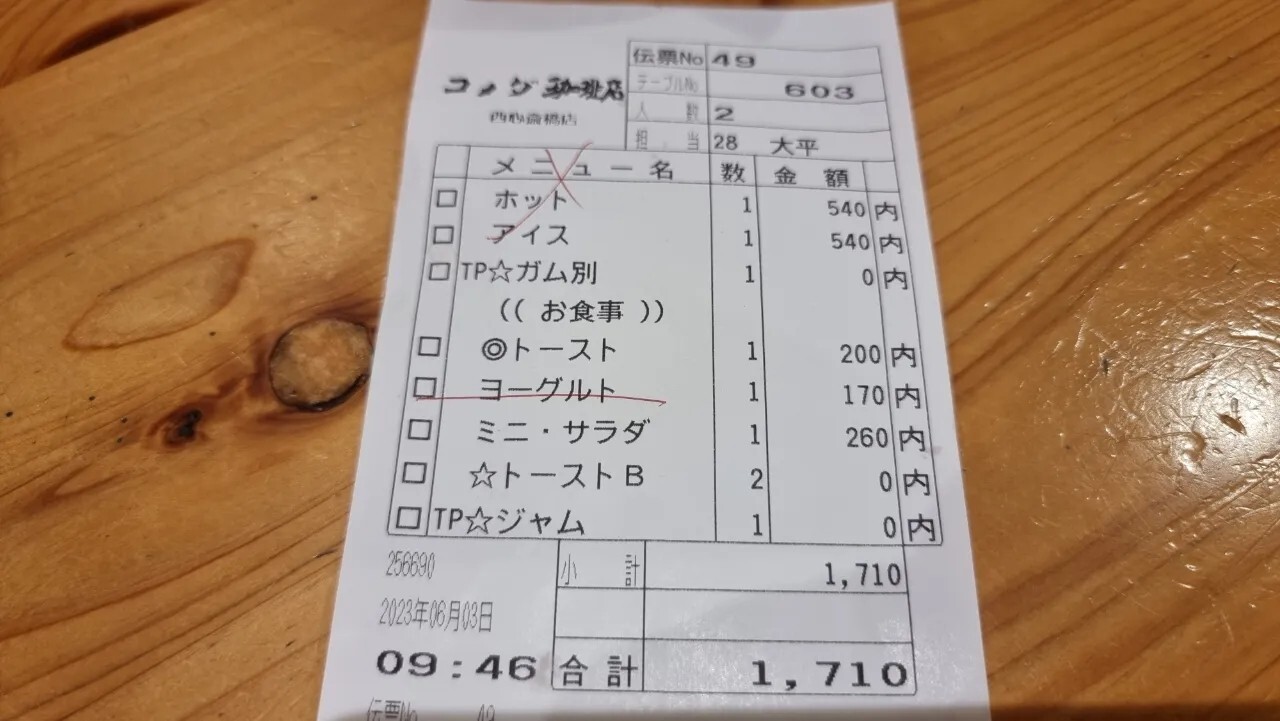 伝票No 49
コメダ珈琲店
テーブルNo 603
西心斎橋店
人数 2
担当 28 大平
メニュー名 数 金額
□ ホット 1 540 内
□ アイス 1 540 内
□ TP☆ガム別 1 0 内
(( お食事 ))
□ ◎トースト 1 200 内
□ ヨーグルト 1 170 内
□ ミニ・サラダ 1 260 内
□ ☆トーストB 2 0 内
□ TP☆ジャム 1 0 内
256690 小計 1,710
2023年06月03日
09:46 合計 1,710
伝票No 49